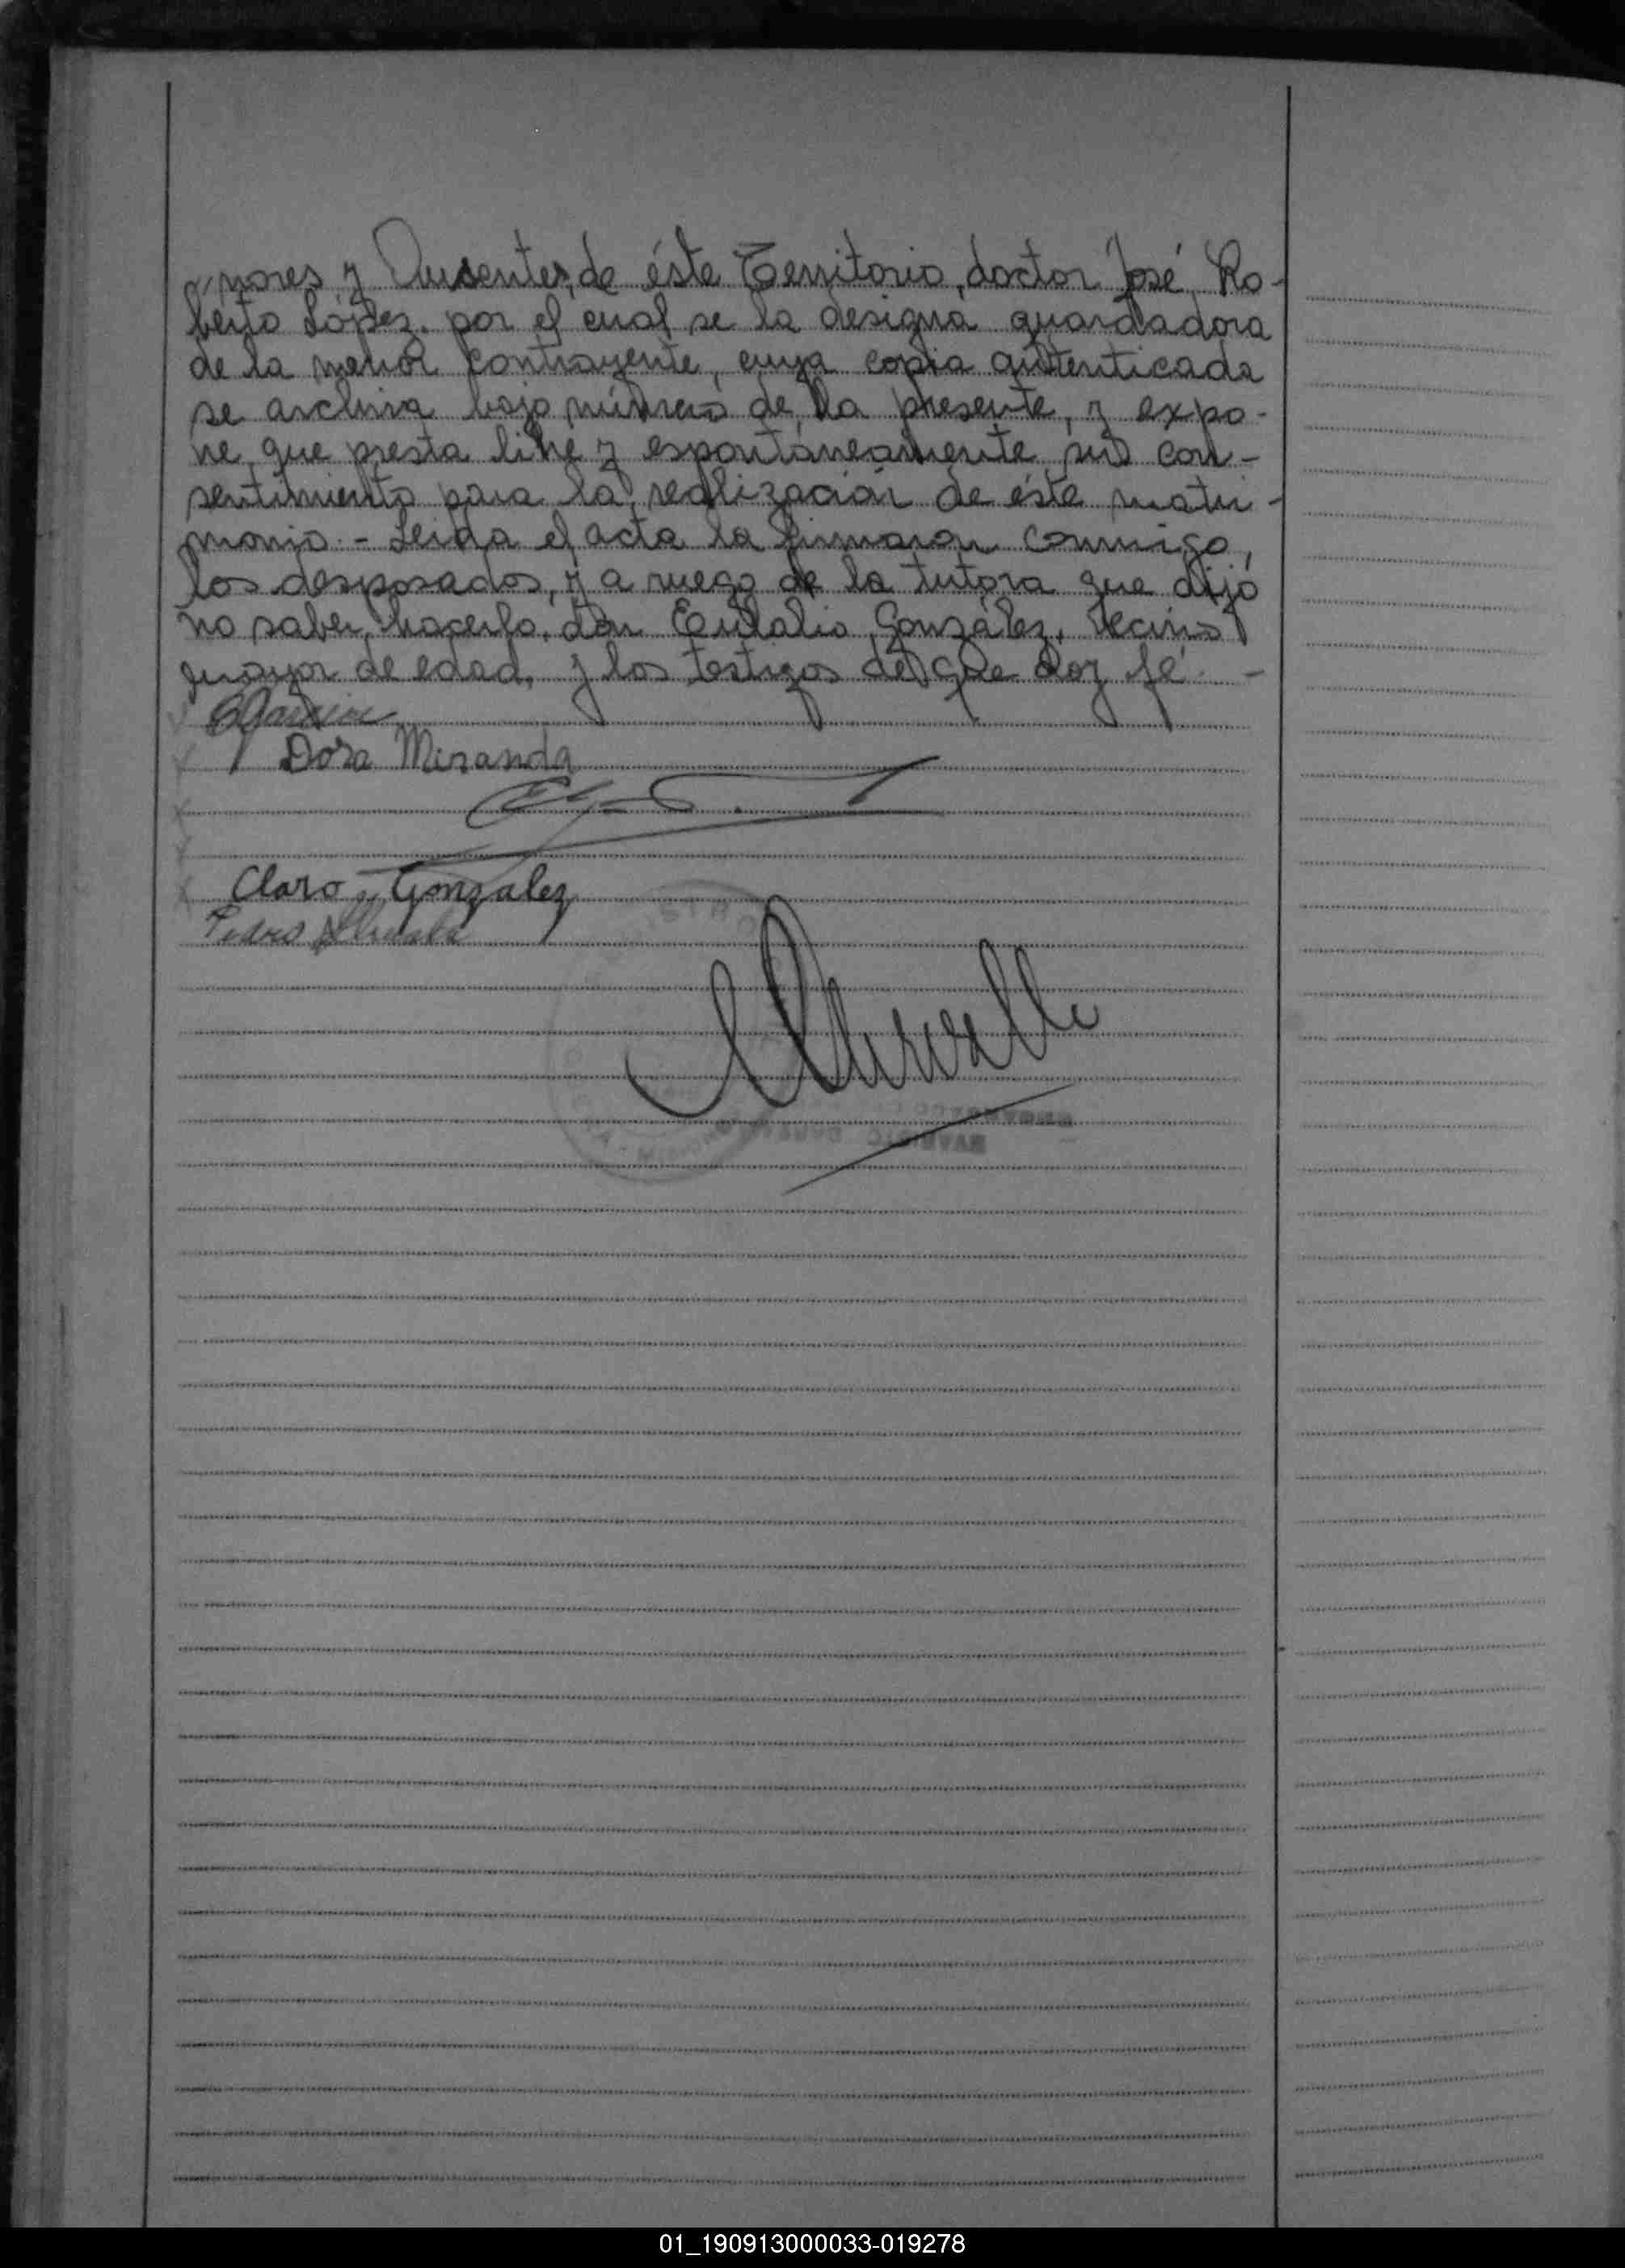 nores y Ausentes, de éste Territorio, doctor José Ro-
berto López, por el cual se la designa guardadora
de la menor contrayente, cuya copia autenticada
se archiva bajo número de la presente, y expo-
ne, que presta libre y espontáneamente su con-
sentimiento para la realización de éste matri-
monio.- Leida el acta la firmaron conmigo,
los desposados, y a ruego de la tutora que dijó
no saber hacerlo, don Eulalio González, vecino
mayor de edad, y los testigos de que doy fé. -
Dora Miranda
Claro González
Pedro
01_190913000033-019278